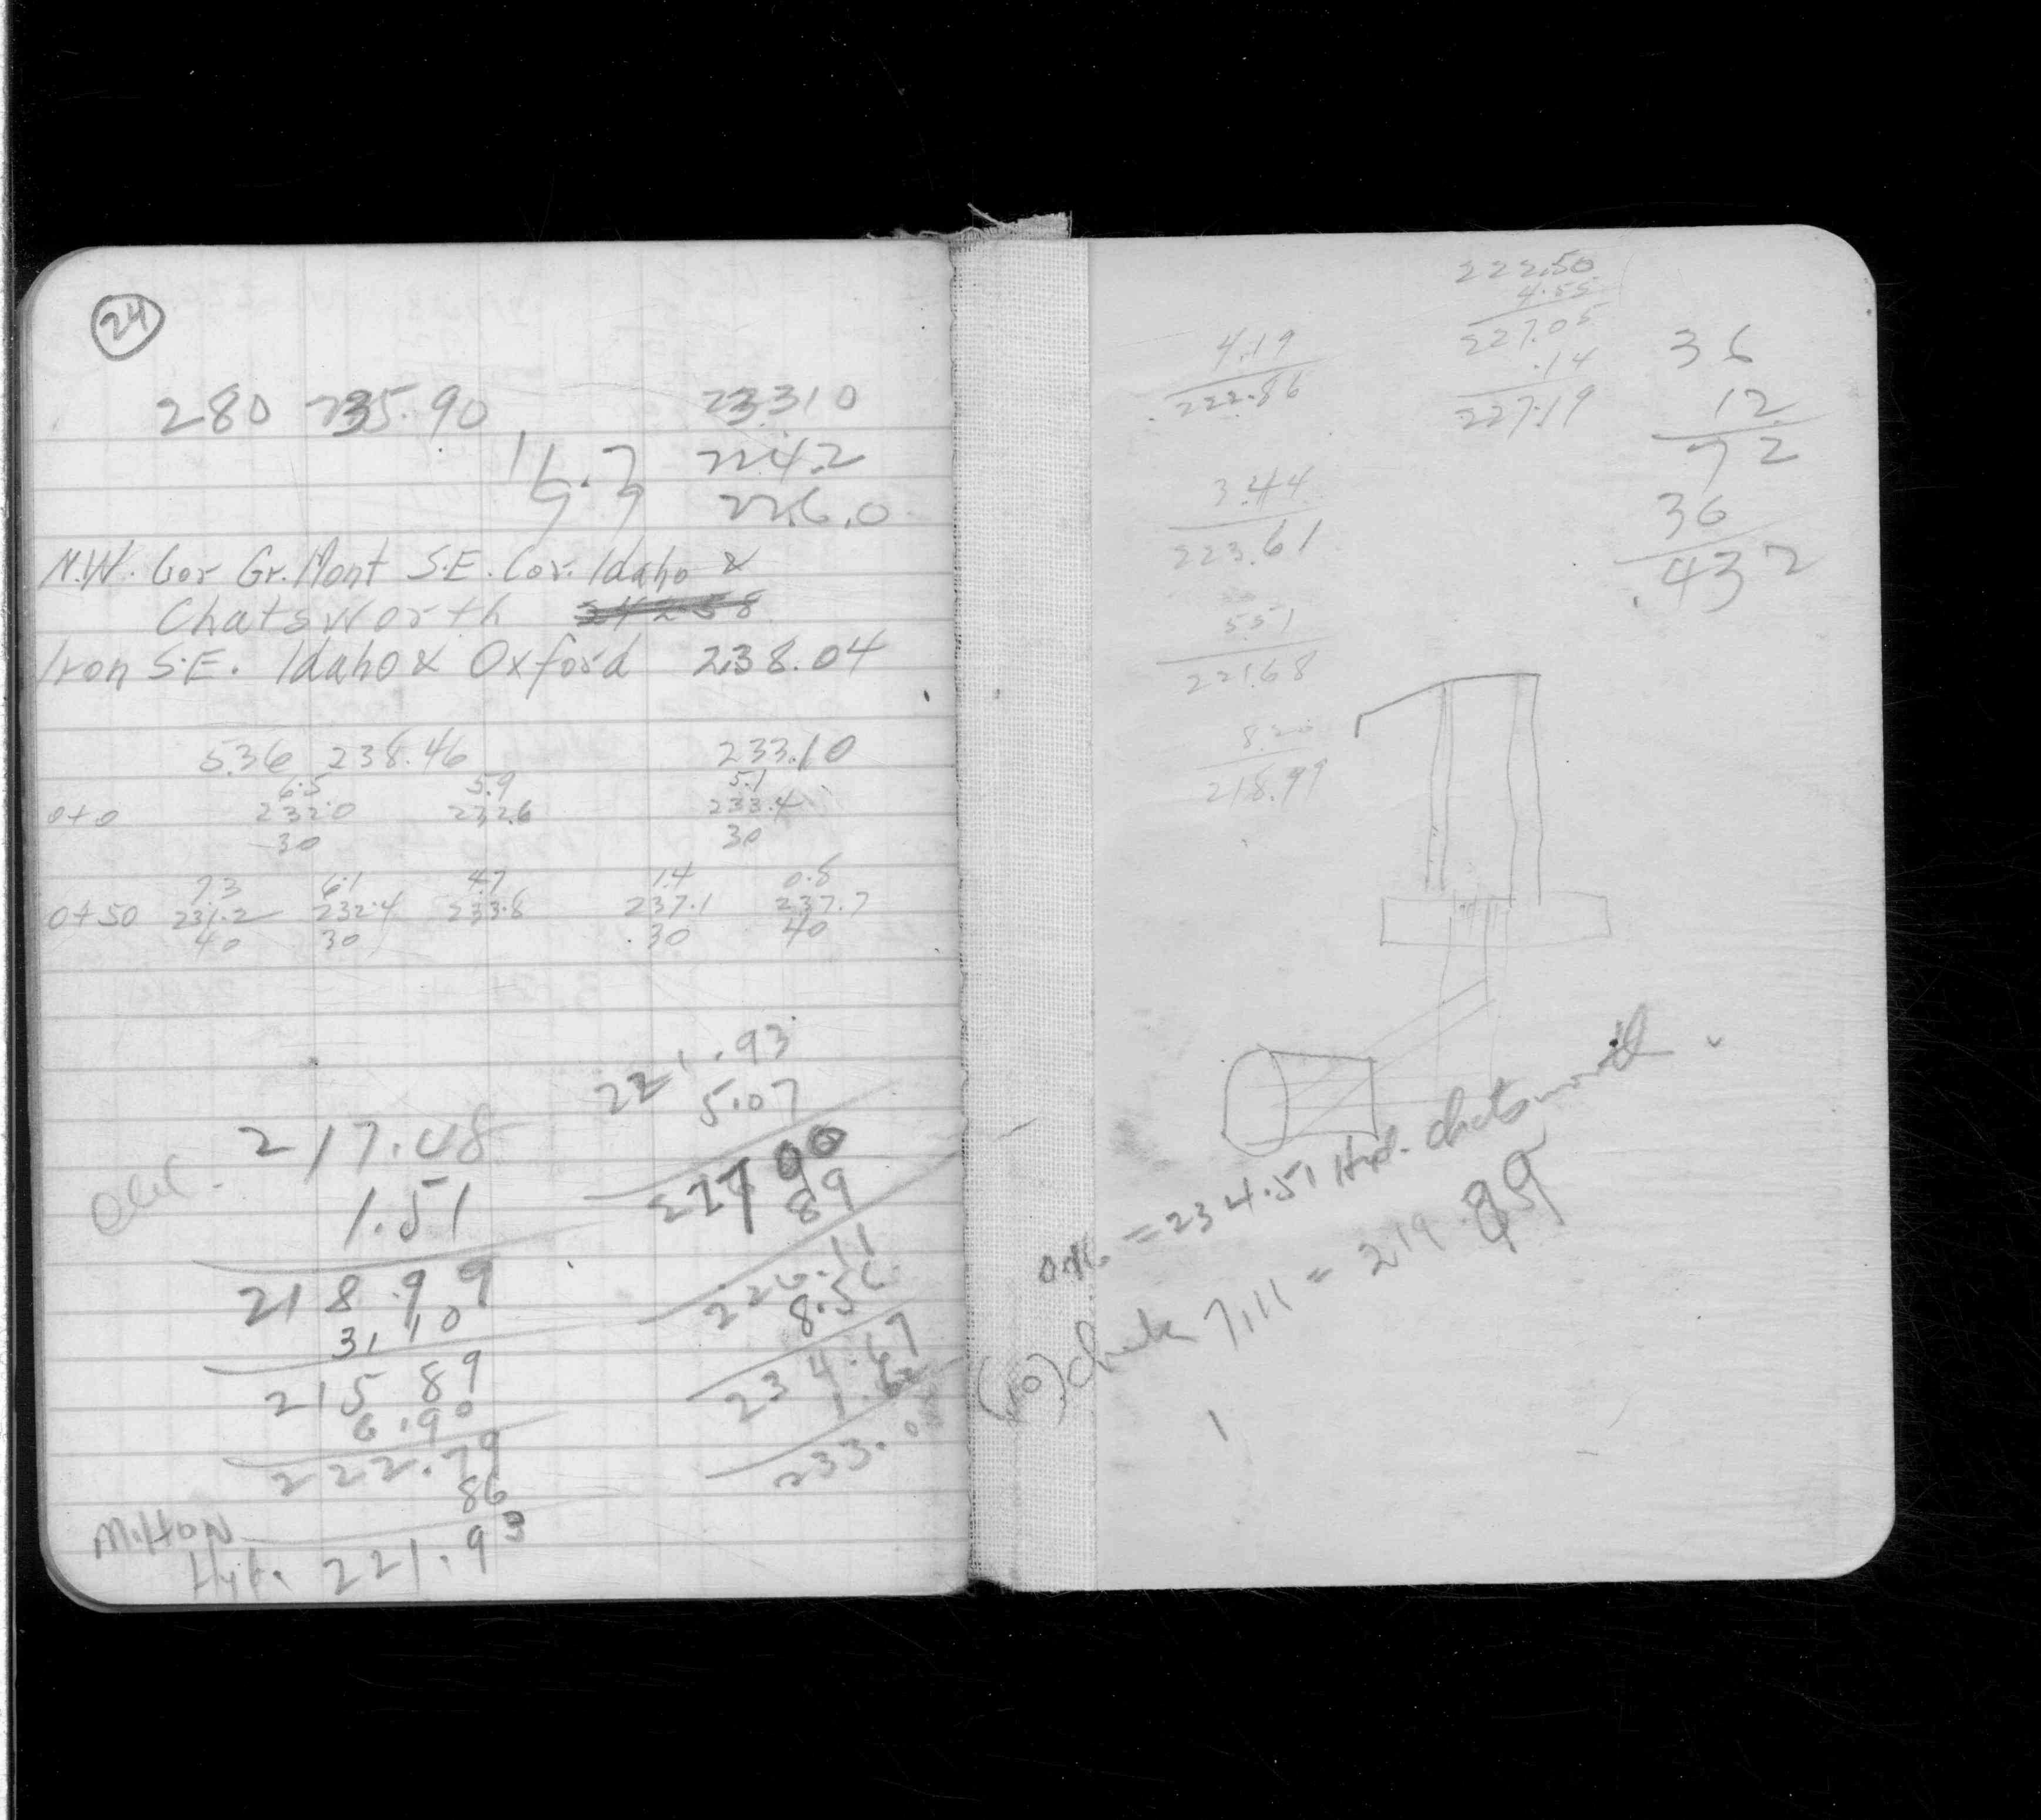 24
280 235.90 233.10
224.2
226.0
N.W. Cor Gr. Mont S.E. Cor. Idaho &
Chatsworth
Iron S.E. Idaho & Oxford 238.04
5.36 238.46 233.10
6.5 5.9 5.1
0+0 232.0 232.6 233.4
30 30
7.3 6.1 4.7 1.4 0.8
0+50 231.2 232.4 233.8 237.1 237.7
40 30 30 40
217.48
1.51
218.99
3.10
215.89
6.90
222.79
86
Milton
Hyt. 221.93
221.93
5.07
227.00
89
226.11
8.56
234.67
1.62
233.05
222.50
4.55
227.05
.14
227.19
4.19
222.86
3.44
223.61
5.51
221.68
8.20
218.99
36
12
72
36
.432
= 234.51 Hyd. Chatsworth
(no) check 7.11 = 219.89